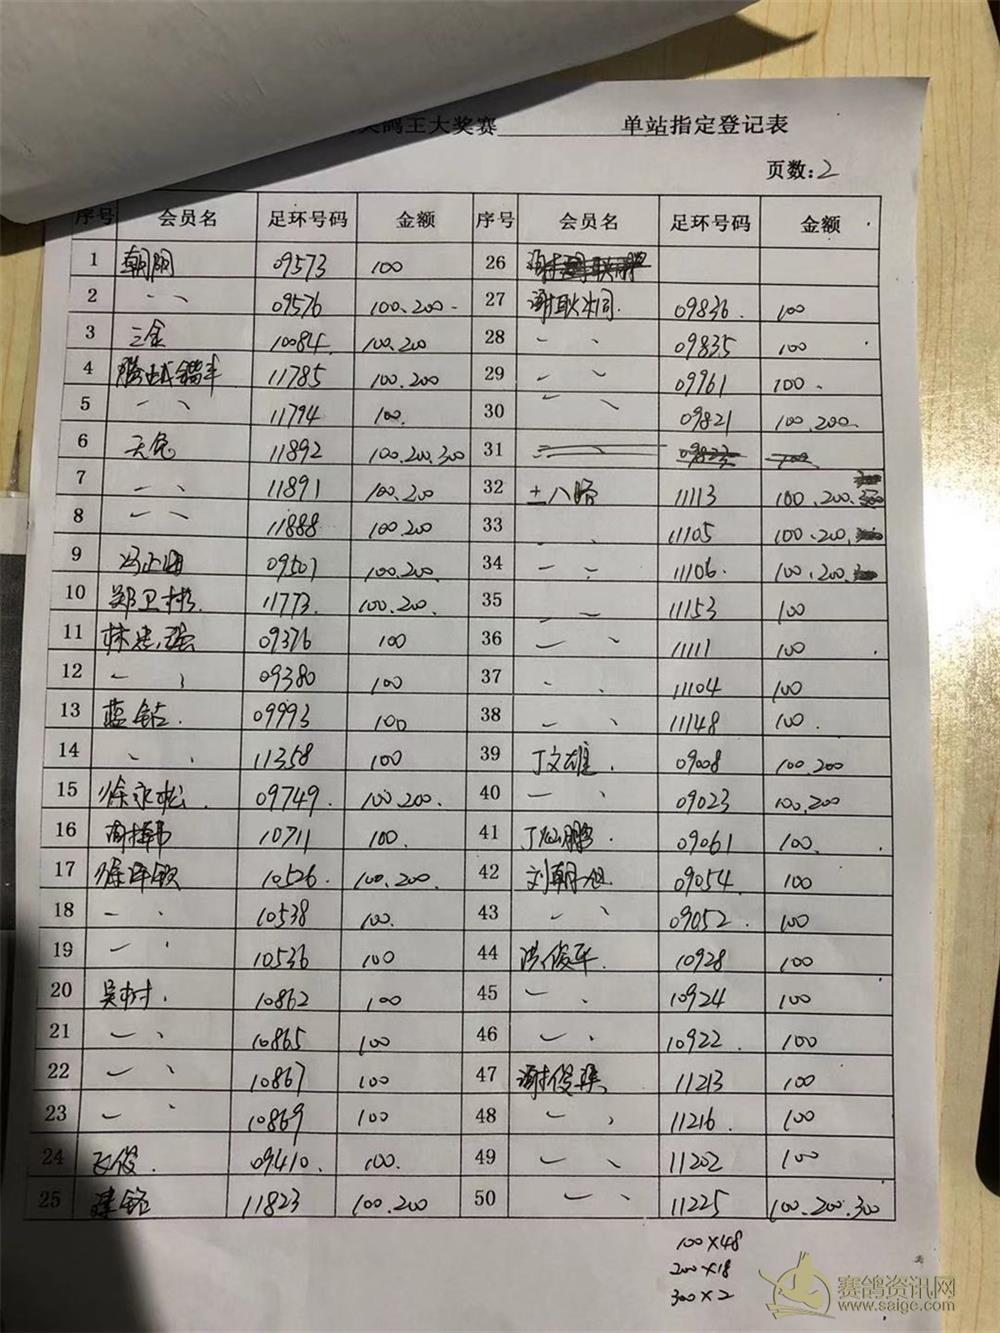 鸽王大奖赛 单站指定登记表
页数:2
序号 会员名 足环号码 金额 序号 会员名 足环号码 金额
1 朝阳 09573 100 26
2 〃 09576 100.200. 27 09836. 100
3 三金 10084. 100.200 28 〃 09835 100
4 11785 100.200 29 〃 09961 100.
5 〃 11794 100. 30 〃 09821 100.200.
6 天兔 11892 100.200.300 31 09823 100
7 〃 11891 100.200 32 土八路 11113 100.200.
8 〃 11888 100.200 33 〃 11105 100.200.
9 冯正海 09507 100.200. 34 〃 11106. 100.200.
10 郑卫彬. 11773. 100.200. 35 〃 11153 100
11 林忠强 09376 100 36 〃 11111 100
12 〃 09380 100 37 〃 11104 100
13 蓝钻. 09993 100 38 〃 11148 100.
14 〃 11358 100 39 丁文雄. 09008 100.200
15 徐永松. 09749. 100.200. 40 〃 09023 100.200
16 10711 100. 41 09061 100.
17 10526. 100.200. 42 刘朝旭 09054. 100
18 〃 10538 100. 43 〃 09052. 100
19 〃 10536 100 44 洪俊平. 10928 100
20 吴树. 10862 100 45 〃 10924 100
21 〃 10865 100 46 〃 10922. 100
22 〃 10867 100 47 谢俊 11213 100
23 〃 10869 100 48 〃 11216. 100
24 飞俊. 09410. 100. 49 〃 11202 100
25 建铭 11823 100.200 50 〃 11225 100.200.300
100×48
200×18
300×2
赛鸽资讯网
www.saige.com